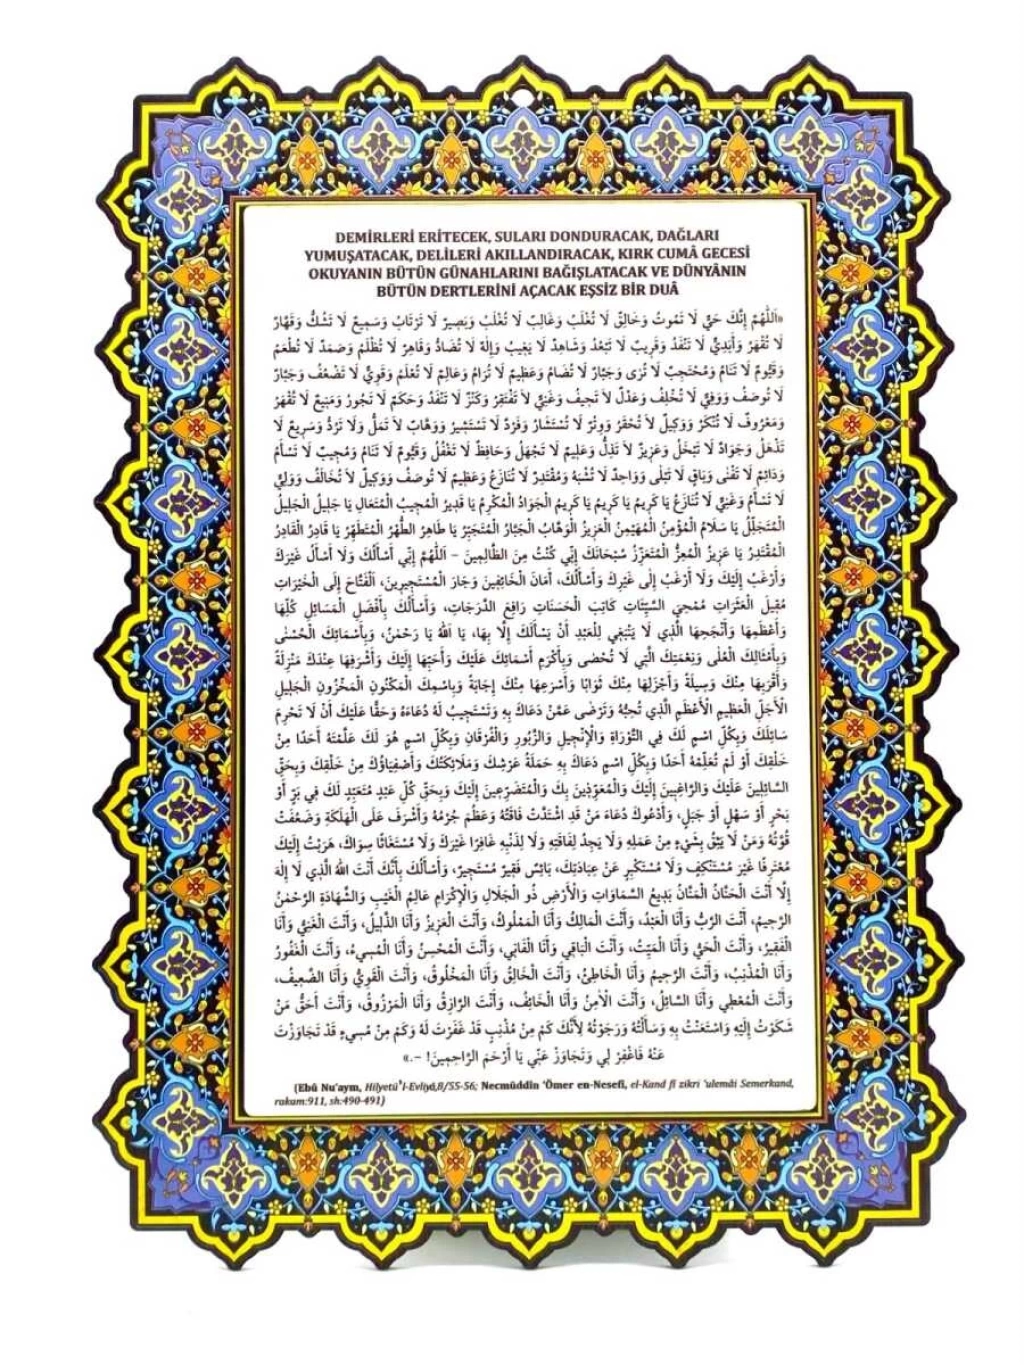 DEMİRLERİ ERİTECEK, SULARI DONDURACAK, DAĞLARI
YUMUŞATACAK, DELİLERİ AKILLANDIRACAK, KIRK CUMÂ GECESİ
OKUYANIN BÜTÜN GÜNAHLARINI BAĞIŞLATACAK VE DÜNYÂNIN
BÜTÜN DERTLERİNİ AÇACAK EŞSİZ BİR DUÂ
«اَللّٰهُمَّ إِنَّكَ حَيٌّ لَا تَمُوتُ وَخَالِقٌ لَا تُغْلَبُ وَغَالِبٌ لَا تُغْلَبُ وَبَصِيرٌ لَا تَرْتَابُ وَسَمِيعٌ لَا تَشُكُّ وَقَهَّارٌ
لَا تُقْهَرُ وَأَبَدِيٌّ لَا تَنْفَدُ وَقَرِيبٌ لَا تَبْعُدُ وَشَاهِدٌ لَا يَغِيبُ وَإِلٰهٌ لَا تُضَادُّ وَقَاهِرٌ لَا تُظْلَمُ وَصَمَدٌ لَا تُطْعَمُ
وَقَيُّومٌ لَا تَنَامُ وَمُحْتَجِبٌ لَا تُرَى وَجَبَّارٌ لَا تُضَامُ وَعَظِيمٌ لَا تُرَامُ وَعَالِمٌ لَا تُعْلَمُ وَقَوِيٌّ لَا تَضْعُفُ وَجَبَّارٌ
لَا تُوصَفُ وَوَفِيٌّ لَا تُخْلِفُ وَعَدْلٌ لَا تَحِيفُ وَغَنِيٌّ لَا تَفْتَقِرُ وَكَنْزٌ لَا تَنْفَدُ وَحَكَمٌ لَا تَجُورُ وَمَنِيعٌ لَا تُقْهَرُ
وَمَعْرُوفٌ لَا تُنْكَرُ وَوَكِيلٌ لَا تُحْقَرُ وَوِتْرٌ لَا تُسْتَشَارُ وَفَرْدٌ لَا تَسْتَشِيرُ وَوَهَّابٌ لَا تَمَلُّ وَلَا تَرُدُّ وَسَرِيعٌ لَا
تَذْهَلُ وَجَوَادٌ لَا تَبْخَلُ وَعَزِيزٌ لَا تَذِلُّ وَعَلِيمٌ لَا تَجْهَلُ وَحَافِظٌ لَا تَغْفُلُ وَقَيُّومٌ لَا تَنَامُ وَمُجِيبٌ لَا تَسْأَمُ
وَدَائِمٌ لَا تَفْنَى وَبَاقٍ لَا تَبْلَى وَوَاحِدٌ لَا تُشْبَهُ وَمُقْتَدِرٌ لَا تُنَازَعُ وَعَظِيمٌ لَا تُوصَفُ وَوَكِيلٌ لَا تُخَالَفُ وَوَلِيٌّ
لَا تَسْأَمُ وَغَنِيٌّ لَا تُنَازَعُ يَا كَرِيمُ يَا كَرِيمُ يَا كَرِيمُ الْجَوَادُ الْمُكْرِمُ يَا قَدِيرُ الْمُجِيبُ الْمُتَعَالِ يَا جَلِيلُ الْجَلِيلُ
الْمُتَجَلِّلُ يَا سَلَامُ الْمُؤْمِنُ الْمُهَيْمِنُ الْعَزِيزُ الْوَهَّابُ الْجَبَّارُ الْمُتَجَبِّرُ يَا طَاهِرُ الطُّهْرُ الْمُتَطَهِّرُ يَا قَادِرُ الْقَادِرُ
الْمُقْتَدِرُ يَا عَزِيزُ الْمُعِزُّ الْمُتَعَزِّزُ سُبْحَانَكَ إِنِّي كُنْتُ مِنَ الظَّالِمِينَ – اَللّٰهُمَّ إِنِّي أَسْأَلُكَ وَلَا أَسْأَلُ غَيْرَكَ
وَأَرْغَبُ إِلَيْكَ وَلَا أَرْغَبُ إِلَى غَيْرِكَ وَأَسْأَلُكَ، أَمَانَ الْخَائِفِينَ وَجَارَ الْمُسْتَجِيرِينَ، اَلْفَتَّاحُ إِلَى الْخَيْرَاتِ
مُقِيلَ الْعَثَرَاتِ مُمْحِيَ السَّيِّئَاتِ كَاتِبَ الْحَسَنَاتِ رَافِعَ الدَّرَجَاتِ، وَأَسْأَلُكَ بِأَفْضَلِ الْمَسَائِلِ كُلِّهَا
وَأَعْظَمِهَا وَأَنْجَحِهَا الَّذِي لَا يَنْبَغِي لِلْعَبْدِ أَنْ يَسْأَلَكَ إِلَّا بِهَا، يَا اَللّٰهُ يَا رَحْمٰنُ، وَبِأَسْمَائِكَ الْحُسْنَى
وَبِأَمْثَالِكَ الْعُلَى وَنِعْمَتِكَ الَّتِي لَا تُحْصَى وَبِأَكْرَمِ أَسْمَائِكَ عَلَيْكَ وَأَحَبِّهَا إِلَيْكَ وَأَشْرَفِهَا عِنْدَكَ مَنْزِلَةً
وَأَقْرَبِهَا مِنْكَ وَسِيلَةً وَأَجْزَلِهَا مِنْكَ ثَوَابًا وَأَسْرَعِهَا مِنْكَ إِجَابَةً وَبِاسْمِكَ الْمَكْنُونِ الْمَخْزُونِ الْجَلِيلِ
الْأَجَلِّ الْعَظِيمِ الْأَعْظَمِ الَّذِي تُحِبُّهُ وَتَرْضَى عَمَّنْ دَعَاكَ بِهِ وَتَسْتَجِيبُ لَهُ دُعَاءَهُ وَحَقًّا عَلَيْكَ أَنْ لَا تَحْرِمَ
سَائِلَكَ وَبِكُلِّ اسْمٍ لَكَ فِي التَّوْرَاةِ وَالْإِنْجِيلِ وَالزَّبُورِ وَالْفُرْقَانِ وَبِكُلِّ اسْمٍ هُوَ لَكَ عَلَّمْتَهُ أَحَدًا مِنْ
خَلْقِكَ أَوْ لَمْ تُعَلِّمْهُ أَحَدًا وَبِكُلِّ اسْمٍ دَعَاكَ بِهِ حَمَلَةُ عَرْشِكَ وَمَلَائِكَتُكَ وَأَصْفِيَاؤُكَ مِنْ خَلْقِكَ وَبِحَقِّ
السَّائِلِينَ عَلَيْكَ وَالرَّاغِبِينَ إِلَيْكَ وَالْمُعَوِّذِينَ بِكَ وَالْمُتَضَرِّعِينَ إِلَيْكَ وَبِحَقِّ كُلِّ عَبْدٍ مُتَعَبِّدٍ لَكَ فِي بَرٍّ أَوْ
بَحْرٍ أَوْ سَهْلٍ أَوْ جَبَلٍ، وَأَدْعُوكَ دُعَاءَ مَنْ قَدِ اشْتَدَّتْ فَاقَتُهُ وَعَظُمَ جُرْمُهُ وَأَشْرَفَ عَلَى الْهَلَكَةِ وَضَعُفَتْ
قُوَّتُهُ وَمَنْ لَا يَثِقُ بِشَيْءٍ مِنْ عَمَلِهِ وَلَا يَجِدُ لِفَاقَتِهِ وَلَا لِذَنْبِهِ غَافِرًا غَيْرَكَ وَلَا مُسْتَغَاثًا سِوَاكَ، هَرَبْتُ إِلَيْكَ
مُعْتَرِفًا غَيْرَ مُسْتَنْكِفٍ وَلَا مُسْتَكْبِرٍ عَنْ عِبَادَتِكَ، بَائِسٌ فَقِيرٌ مُسْتَجِيرٌ، وَأَسْأَلُكَ بِأَنَّكَ أَنْتَ اللّٰهُ الَّذِي لَا إِلٰهَ
إِلَّا أَنْتَ الْحَنَّانُ الْمَنَّانُ بَدِيعُ السَّمَاوَاتِ وَالْأَرْضِ ذُو الْجَلَالِ وَالْإِكْرَامِ عَالِمُ الْغَيْبِ وَالشَّهَادَةِ الرَّحْمٰنُ
الرَّحِيمُ، أَنْتَ الرَّبُّ وَأَنَا الْعَبْدُ، وَأَنْتَ الْمَالِكُ وَأَنَا الْمَمْلُوكُ، وَأَنْتَ الْعَزِيزُ وَأَنَا الذَّلِيلُ، وَأَنْتَ الْغَنِيُّ وَأَنَا
الْفَقِيرُ، وَأَنْتَ الْحَيُّ وَأَنَا الْمَيِّتُ، وَأَنْتَ الْبَاقِي وَأَنَا الْفَانِي، وَأَنْتَ الْمُحْسِنُ وَأَنَا الْمُسِيءُ، وَأَنْتَ الْغَفُورُ
وَأَنَا الْمُذْنِبُ، وَأَنْتَ الرَّحِيمُ وَأَنَا الْخَاطِئُ، وَأَنْتَ الْخَالِقُ وَأَنَا الْمَخْلُوقُ، وَأَنْتَ الْقَوِيُّ وَأَنَا الضَّعِيفُ،
وَأَنْتَ الْمُعْطِي وَأَنَا السَّائِلُ، وَأَنْتَ الْأَمِنُ وَأَنَا الْخَائِفُ، وَأَنْتَ الرَّازِقُ وَأَنَا الْمَرْزُوقُ، وَأَنْتَ أَحَقُّ مَنْ
شَكَوْتُ إِلَيْهِ وَاسْتَغَثْتُ بِهِ وَسَأَلْتُهُ وَرَجَوْتُهُ لِأَنَّكَ كَمْ مِنْ مُذْنِبٍ قَدْ غَفَرْتَ لَهُ وَكَمْ مِنْ مُسِيءٍ قَدْ تَجَاوَزْتَ
عَنْهُ فَاغْفِرْ لِي وَتَجَاوَزْ عَنِّي يَا أَرْحَمَ الرَّاحِمِينَ! –.»
(Ebû Nu'aym, Hilyetü'l-Evliyâ,8/55-56; Necmüddîn 'Ömer en-Nesefî, el-Kand fî zikri 'ulemâi Semerkand,
rakam:911, sh:490-491)